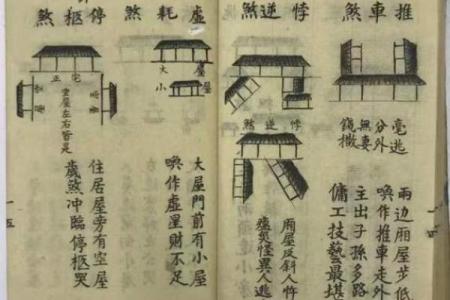 推車煞
毫逃
分外
無妻
兩边廂屋步低
喚作推車走外
主出子孫多路
傭工技藝最堪
悖逆煞
悖逆煞
廂屋反斜人忤
瘟災怪異人逃
虛耗煞
大屋
小屋
大屋門前有小屋
喚作虛星財不足
停柩煞
正宅
空屋左右皆是
住居屋旁有空屋
歲煞冲臨停柩哭
一五